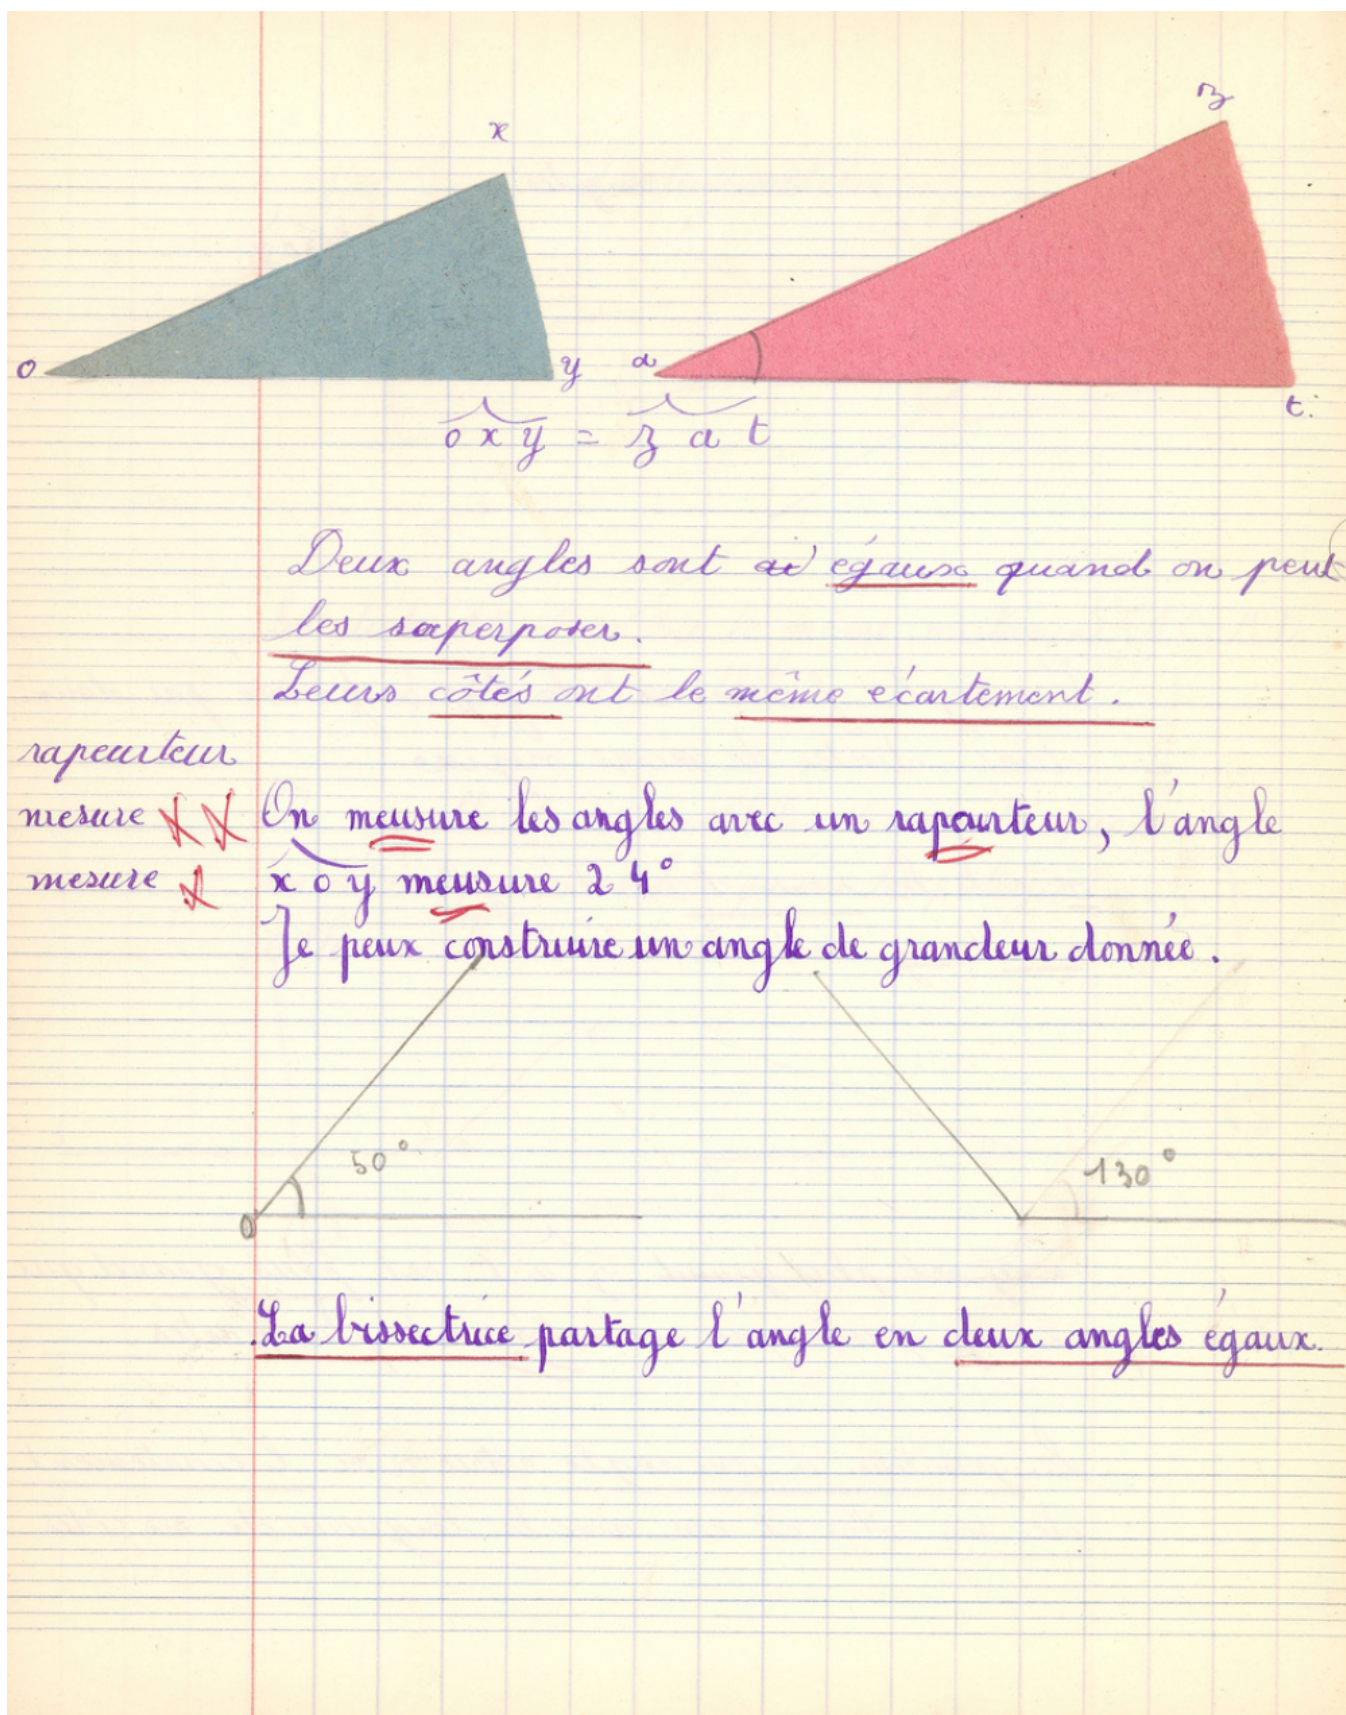 x
z
o
y
a
t.
o x y = z a t
Deux angles sont égaux quand on peut
les superposer.
Leurs côtés ont le même écartement.
rapeurteur
mesure On meusure les angles avec un rapeurteur, l'angle
mesure x o y meusure 24°
Je peux construire un angle de grandeur donnée.
50°
130°
O
La bissectrice partage l'angle en deux angles égaux.